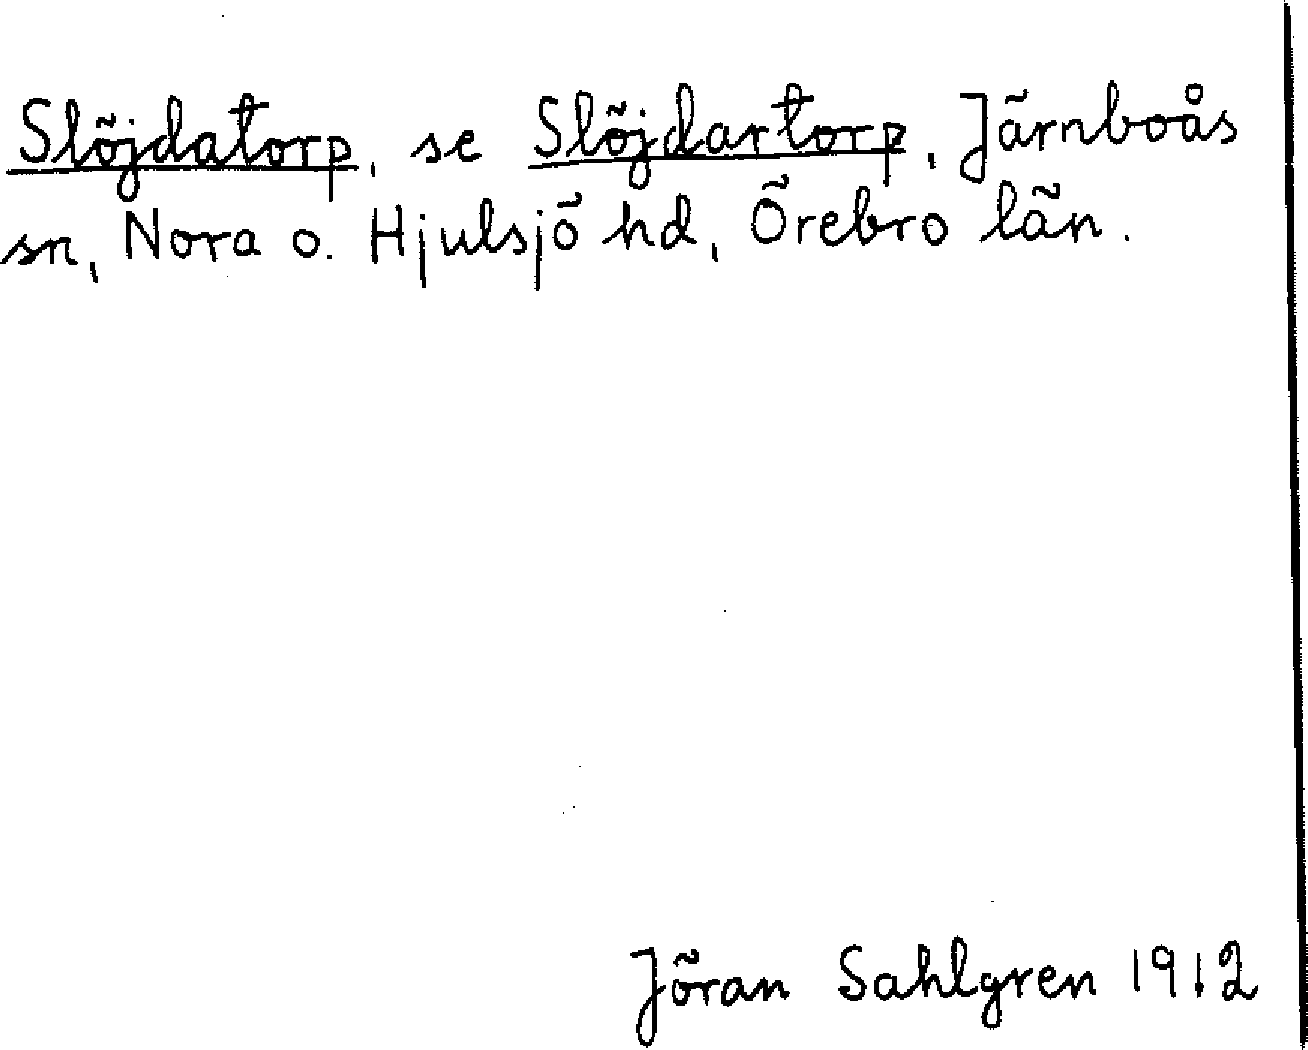 Slöjdatorp, se Slöjdartorp, Järnboås
sn, Nora o. Hjulsjö hd, Örebro län.
Jöran Sahlgren 1912